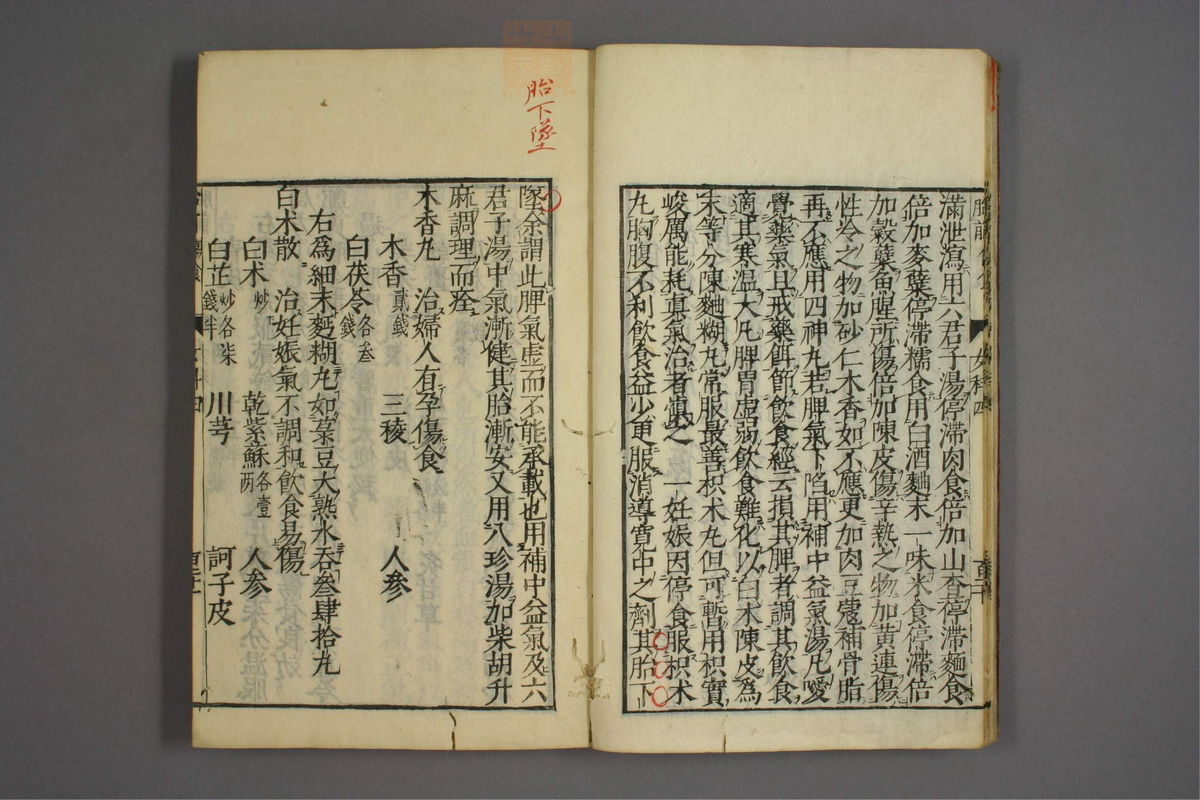 滿泄瀉用六君子湯停滯肉食倍加山查停滯麵食
倍加麥糵停滯糯食用白酒麯末一味米食停滯倍
加穀糵魚腥所傷倍加陳皮傷辛熱之物加黃連傷
性冷之物加砂仁木香如不應更加肉豆蔻補骨脂
再不應用四神丸若脾氣下陷用補中益氣湯凡嗳
覺藥氣且戒藥餌節飲食經云損其脾者調其飲食
適其寒温大凡脾胃虚弱飲食難化以白术陳皮為
末等分陳麯糊丸常服最善枳术丸但可暫用枳實
峻厲能耗真氣治者慎之 一妊娠因停食服枳术
丸胸腹不利飲食益少更服消導寬中之劑其胎下
胎下墜
墜余謂此脾氣虚而不能承載也用補中益氣及六
君子湯中氣漸健其胎漸安又用八珍湯加柴胡升
麻調理而痊
木香丸 治婦人有孕傷食
木香貳錢 三稜 人參
白茯苓各叁錢
右爲細末麪糊丸如菉豆大熟水吞叁肆拾丸
白术散 治妊娠氣不調和飲食易傷
白术炒 乾紫蘇各壹兩 人參
白芷炒各柒錢半 川芎 訶子皮